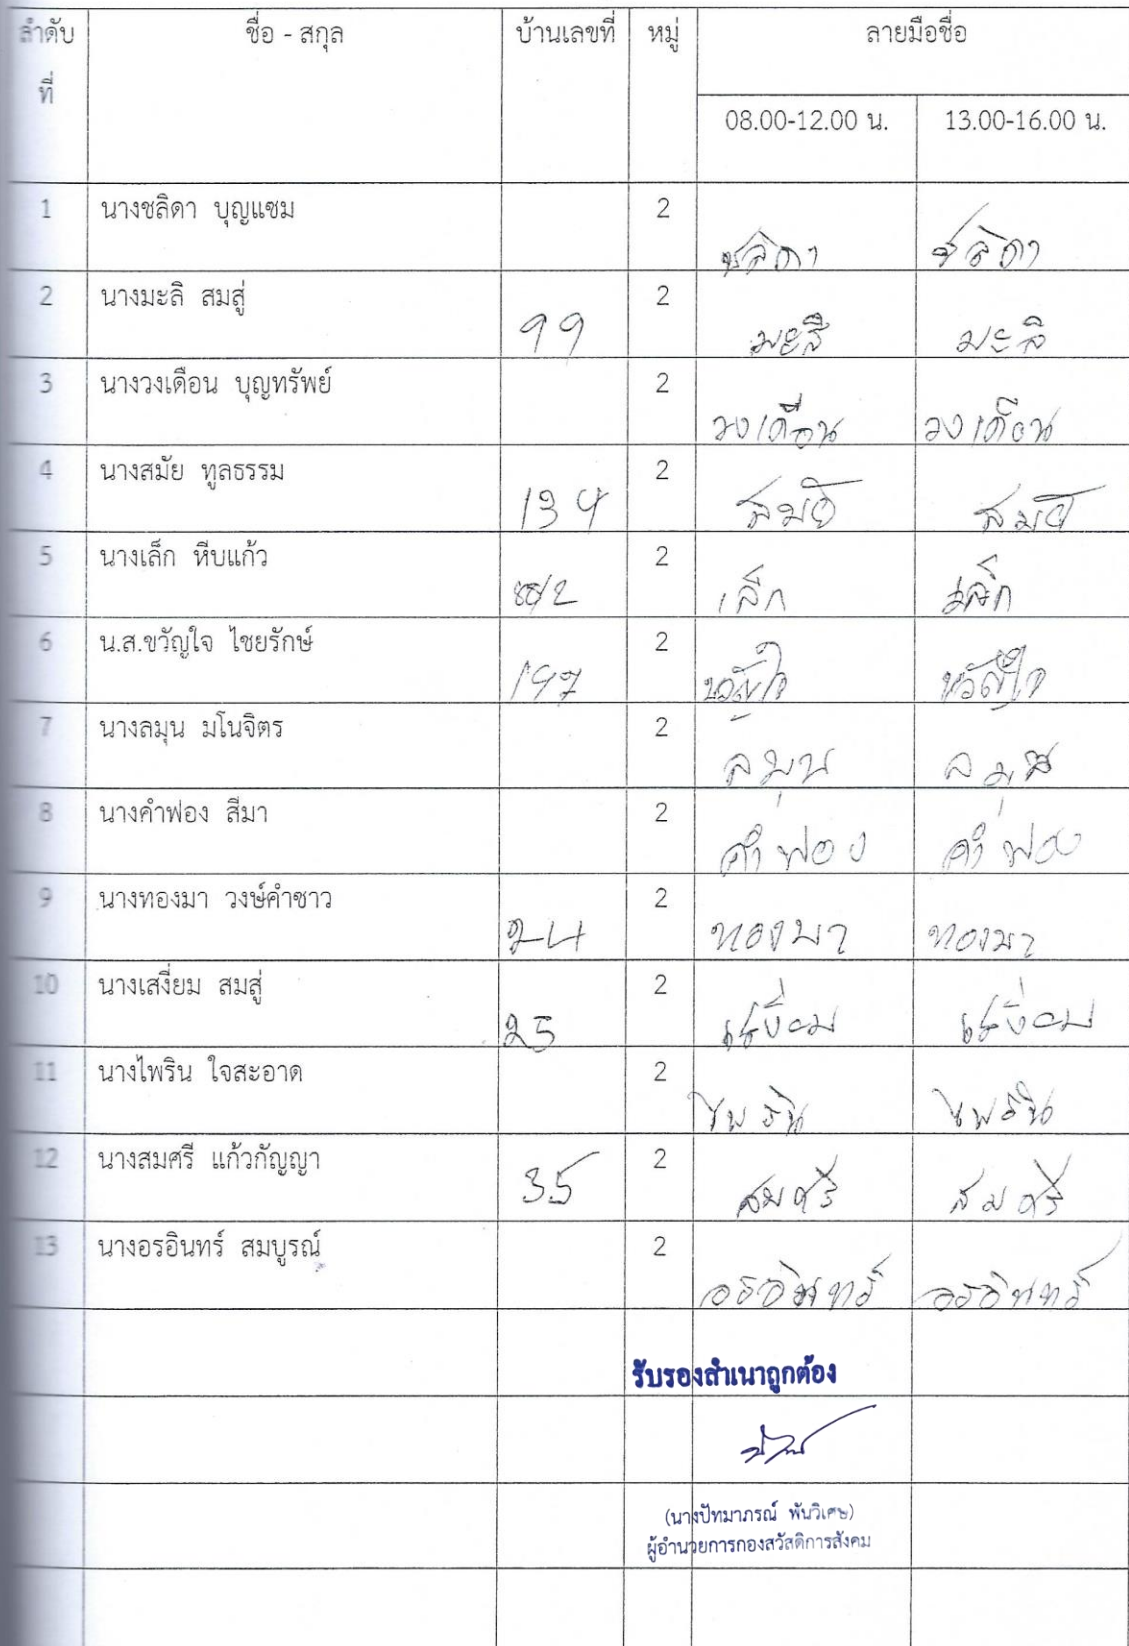 ลำดับที่ ชื่อ - สกุล บ้านเลขที่ หมู่ ลายมือชื่อ
08.00-12.00 น. 13.00-16.00 น.
1 นางชลิดา บุญแซม 2 ชลิดา ชลิดา
2 นางมะลิ สมสู่ 99 2 มะลิ มะลิ
3 นางวงเดือน บุญทรัพย์ 2 วงเดือน วงเดือน
4 นางสมัย ทูลธรรม 134 2 สมัย สมัย
5 นางเล็ก หีบแก้ว 2 เล็ก เล็ก
6 น.ส.ขวัญใจ ไชยรักษ์ 197 2 ขวัญใจ ขวัญใจ
7 นางลมุน มโนจิตร 2 ลมุน ลมุน
8 นางคำฟอง สีมา 2 คำฟอง คำฟอง
9 นางทองมา วงษ์คำซาว 24 2 ทองมา ทองมา
10 นางเสงี่ยม สมสู่ 25 2 เสงี่ยม เสงี่ยม
11 นางไพริน ใจสะอาด 2 ไพริน ไพริน
12 นางสมศรี แก้วกัญญา 35 2 สมศรี สมศรี
13 นางอรอินทร์ สมบูรณ์ 2 อรอินทร์ อรอินทร์
รับรองสำเนาถูกต้อง
(นางปัทมาภรณ์ พันวิเศษ)
ผู้อำนวยการกองสวัสดิการสังคม